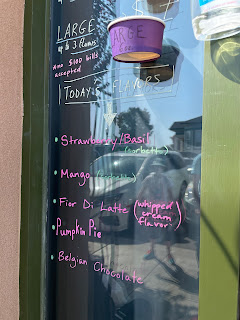 $7
LARGE
up to 3 flavors
*no $100 bills
accepted
LARGE
TODAY'S FLAVORS
• Strawberry/Basil
(sorbetto)
• Mango (sorbetto)
• Fior Di Latte (whipped
cream
flavor)
• Pumpkin Pie
• Belgian Chocolate